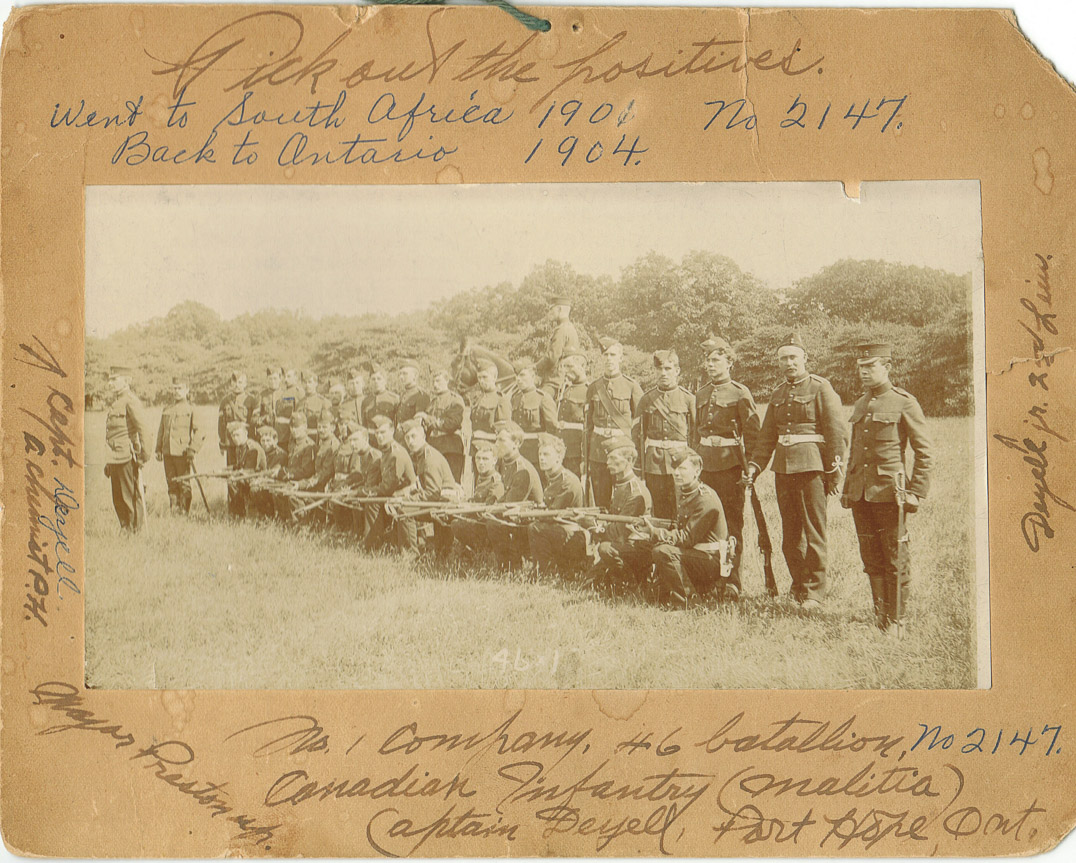 Pick out the positives.
Went to South Africa 1901 No 2147.
Back to Ontario 1904.
Capt. Deyell.
a churist P.H.
Deyell jr. 2nd Lieu.
46-1
Major Preston up.
No. 1 Company, 46 batallion, No 2147.
Canadian Infantry (malitia)
Captain Deyell, Port Hope, Ont.